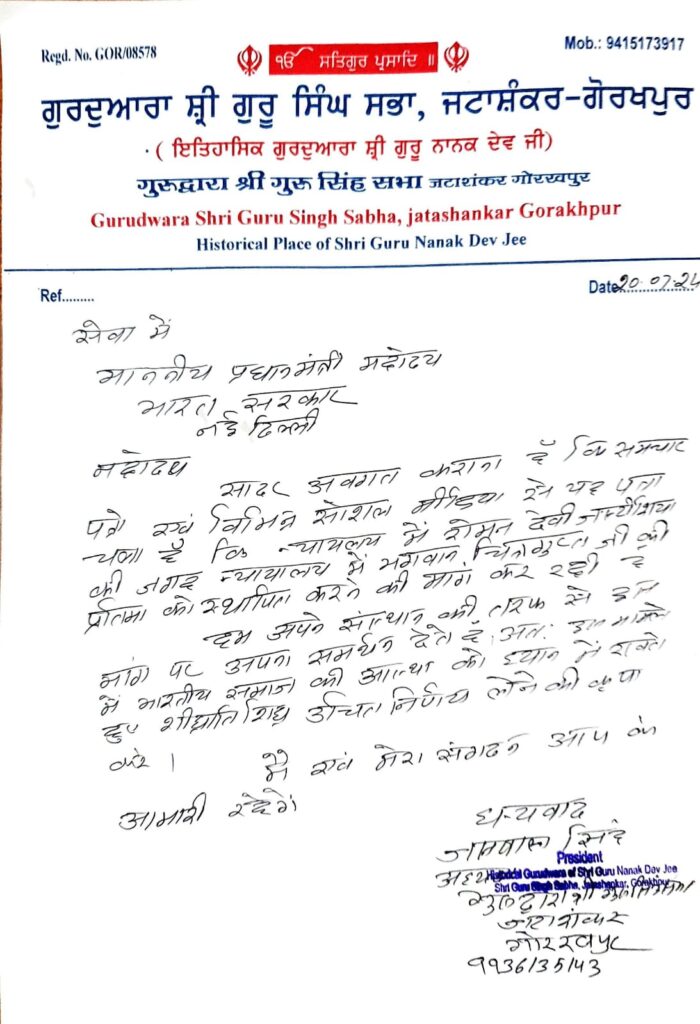 Regd. No. GOR/08578
ੴ ਸਤਿਗੁਰ ਪ੍ਰਸਾਦਿ ॥
Mob.: 9415173917
ਗੁਰਦੁਆਰਾ ਸ਼੍ਰੀ ਗੁਰੂ ਸਿੰਘ ਸਭਾ, ਜਟਾਸ਼ੰਕਰ-ਗੋਰਖਪੁਰ
( ਇਤਿਹਾਸਿਕ ਗੁਰਦੁਆਰਾ ਸ਼੍ਰੀ ਗੁਰੂ ਨਾਨਕ ਦੇਵ ਜੀ)
गुरुद्वारा श्री गुरु सिंह सभा जटाशंकर गोरखपुर
Gurudwara Shri Guru Singh Sabha, jatashankar Gorakhpur
Historical Place of Shri Guru Nanak Dev Jee
Ref.........
Date 20.07.24
सेवा में
माननीय प्रधानमंत्री महोदय
भारत सरकार
नई दिल्ली
महोदय
सादर अवगत कराना है कि समाचार
पत्रो एवं विभिन्न सोशल मीडिया से यह पता
चला है कि न्यायलय में रोमन देवी
की जगह न्यायालय में भगवान चित्रगुप्त जी की
प्रतिमा को स्थापित करने की मांग कर रही है
हम अपने संस्थान की तरफ से इस
मांग पर अपना समर्थन देते है, अतः इस मामले
में भारतीय समाज की आस्था को ध्यान में रखते
हुए उचित निर्णय लेने की कृपा
करे।
मै एवं मेरा संगठन आप के
आभारी रहेगें
धन्यवाद
सिंह
President
अध्यक्ष
Historical Gurudwara of Shri Guru Nanak Dev Jee
Shri Guru Singh Sabha, Jatashankar, Gorakhpur
जटाशंकर
गोरखपुर
9936135143